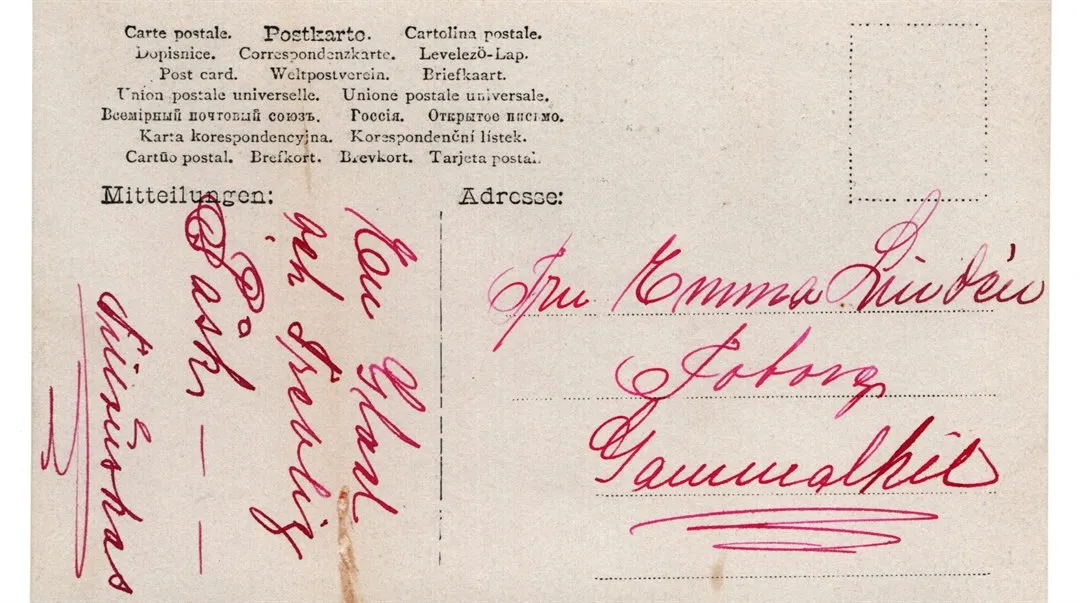 Carte postale. Postkarte. Cartolina postale.
Dopisnice. Correspondenzkarte. Levelezö-Lap.
Post card. Weltpostverein. Briefkaart.
Union postale universelle. Unione postale universale.
Всемірный почтовый союзъ. Россія. Открытое письмо.
Karta korespondencyjna. Korespondenční lístek.
Cartão postal. Brefkort. Brevkort. Tarjeta postal.
Mitteilungen:
En Glad
och Trevlig
Påsk — —
Tillönskas
Adresse:
Fru Emma Lindén
Foborg
Gammalkil